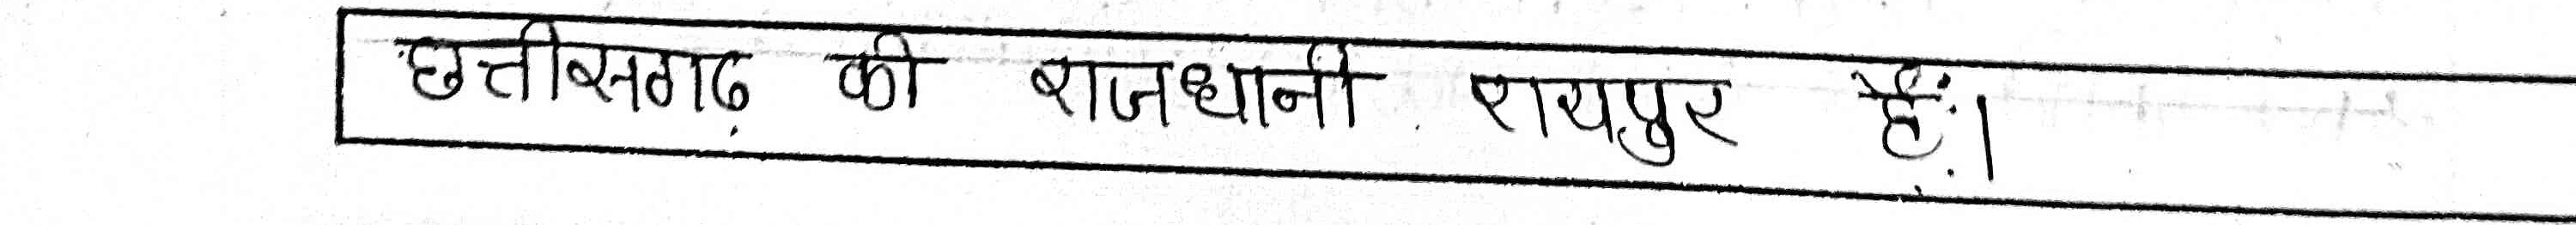 छत्तीसगढ़ की राजधानी रायपुर हैं।